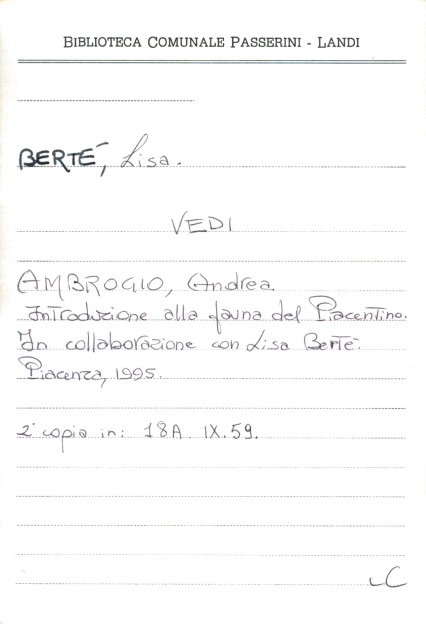 BIBLIOTECA COMUNALE PASSERINI - LANDI
BERTÉ, Lisa.
VEDI
AMBROGIO, Andrea.
Introduzione alla fauna del Piacentino.
In collaborazione con Lisa Berté.
Piacenza, 1995.
2ª copia in: 18A. IX. 59.